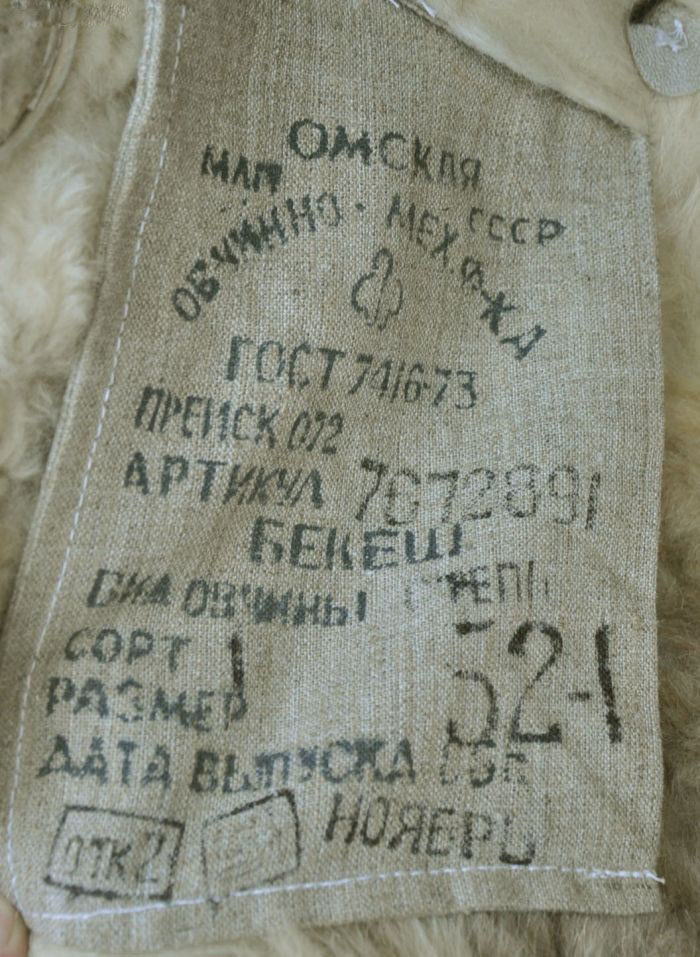 ОМСКАЯ
МЛП СССР
ОВЧИННО-МЕХ. Ф-КА
ГОСТ 7416-73
ПРЕЙСК 072
АРТИКУЛ 7672891
БЕКЕШ
ВИД ОВЧИНЫ СТЕПН
СОРТ 1
РАЗМЕР 52-1
ДАТА ВЫПУСКА
НОЯБРЬ
ОТК 2